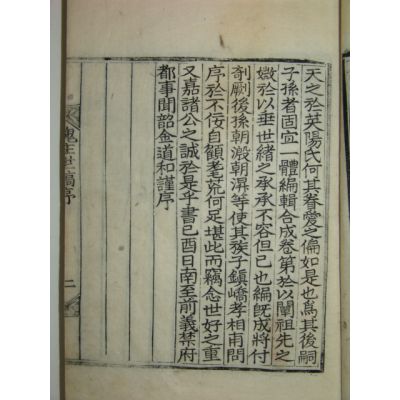 天之於英陽氏何其眷愛之偏如是也爲其後嗣
子孫者固宜一體編輯合成卷第於以闡祖先之
媺於以垂世緖之承承不容但已也編旣成將付
剞劂後孫朝瀫朝漽等使其族子鎭嶠孝相甫問
序於不佞自顧耄荒何足堪此而竊念世好之重
又嘉諸公之誠於是乎書己酉日南至前義禁府
都事聞韶金道和謹序
世稿序
二